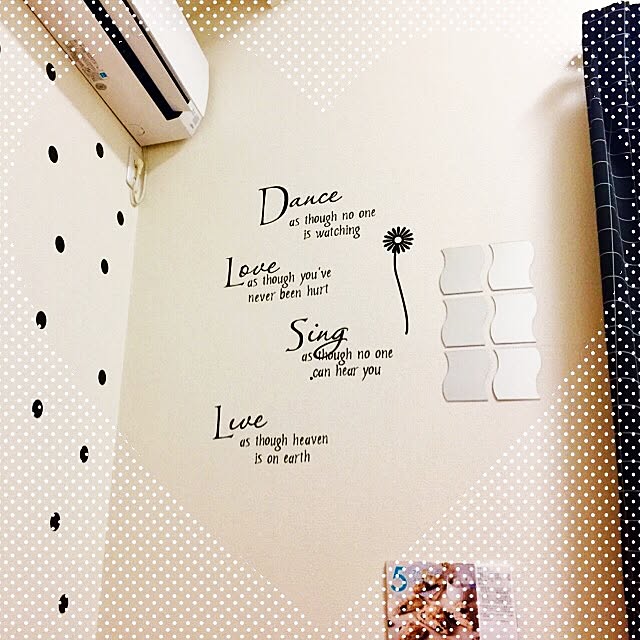 Dance
as though no one
is watching
Love
as though you've
never been hurt
Sing
as though no one
can hear you
Live
as though heaven
is on earth
5